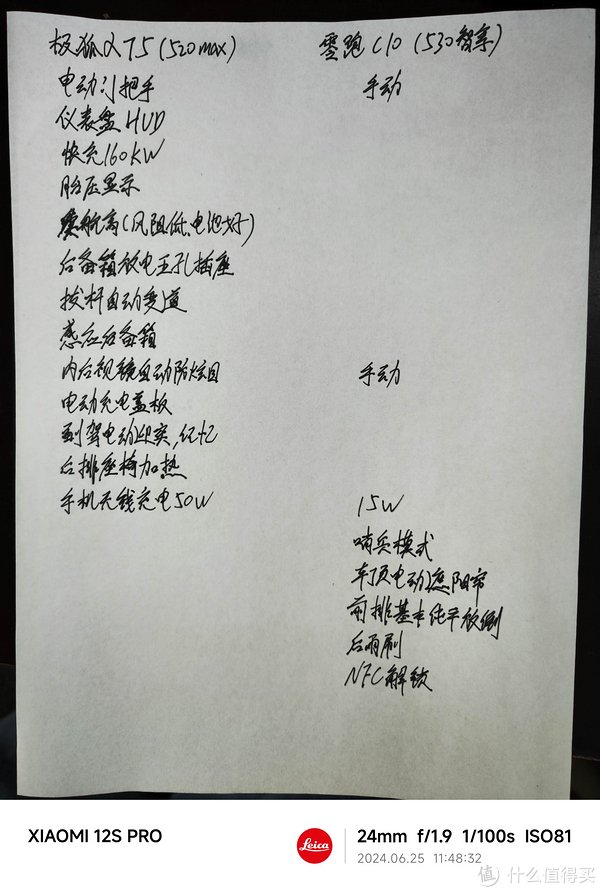 极狐αT5(520max) 零跑C10(530智享)
电动门把手 手动
仪表盘HUD
快充160KW
胎压显示
续航高(风阻低、电池好)
后备箱放电五孔插座
拨杆自动变道
感应后备箱
内后视镜自动防炫目 手动
电动充电盖板
副驾电动迎宾,记忆
后排座椅加热
手机无线充电50W 15W
哨兵模式
车顶电动遮阳帘
前排基本纯平放倒
后雨刷
NFC解锁
XIAOMI 12S PRO Leica 24mm f/1.9 1/100s ISO81
2024.06.25 11:48:32
值 什么值得买